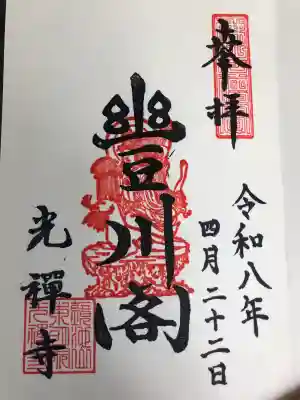 奉拝
令和八年
四月二十二日
豊川閣
光禪寺